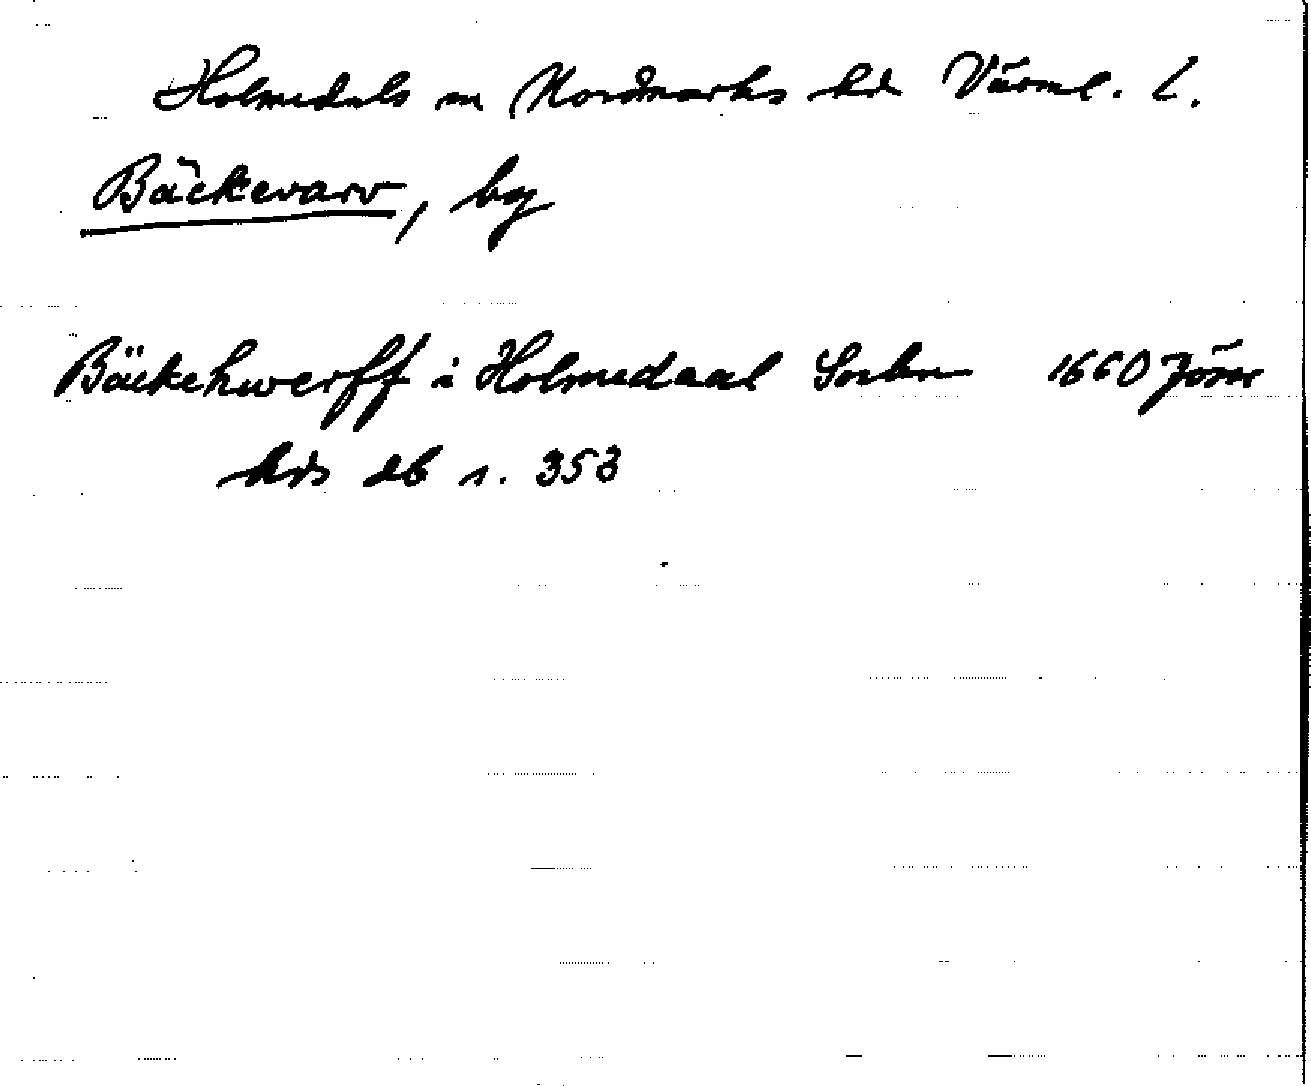 Holmedals sn Nordmarks hd Värml. L.
Bäckevarv, by
Bäckehwerff i Holmedaal Sockn 1660 Jösse
hds db s. 353